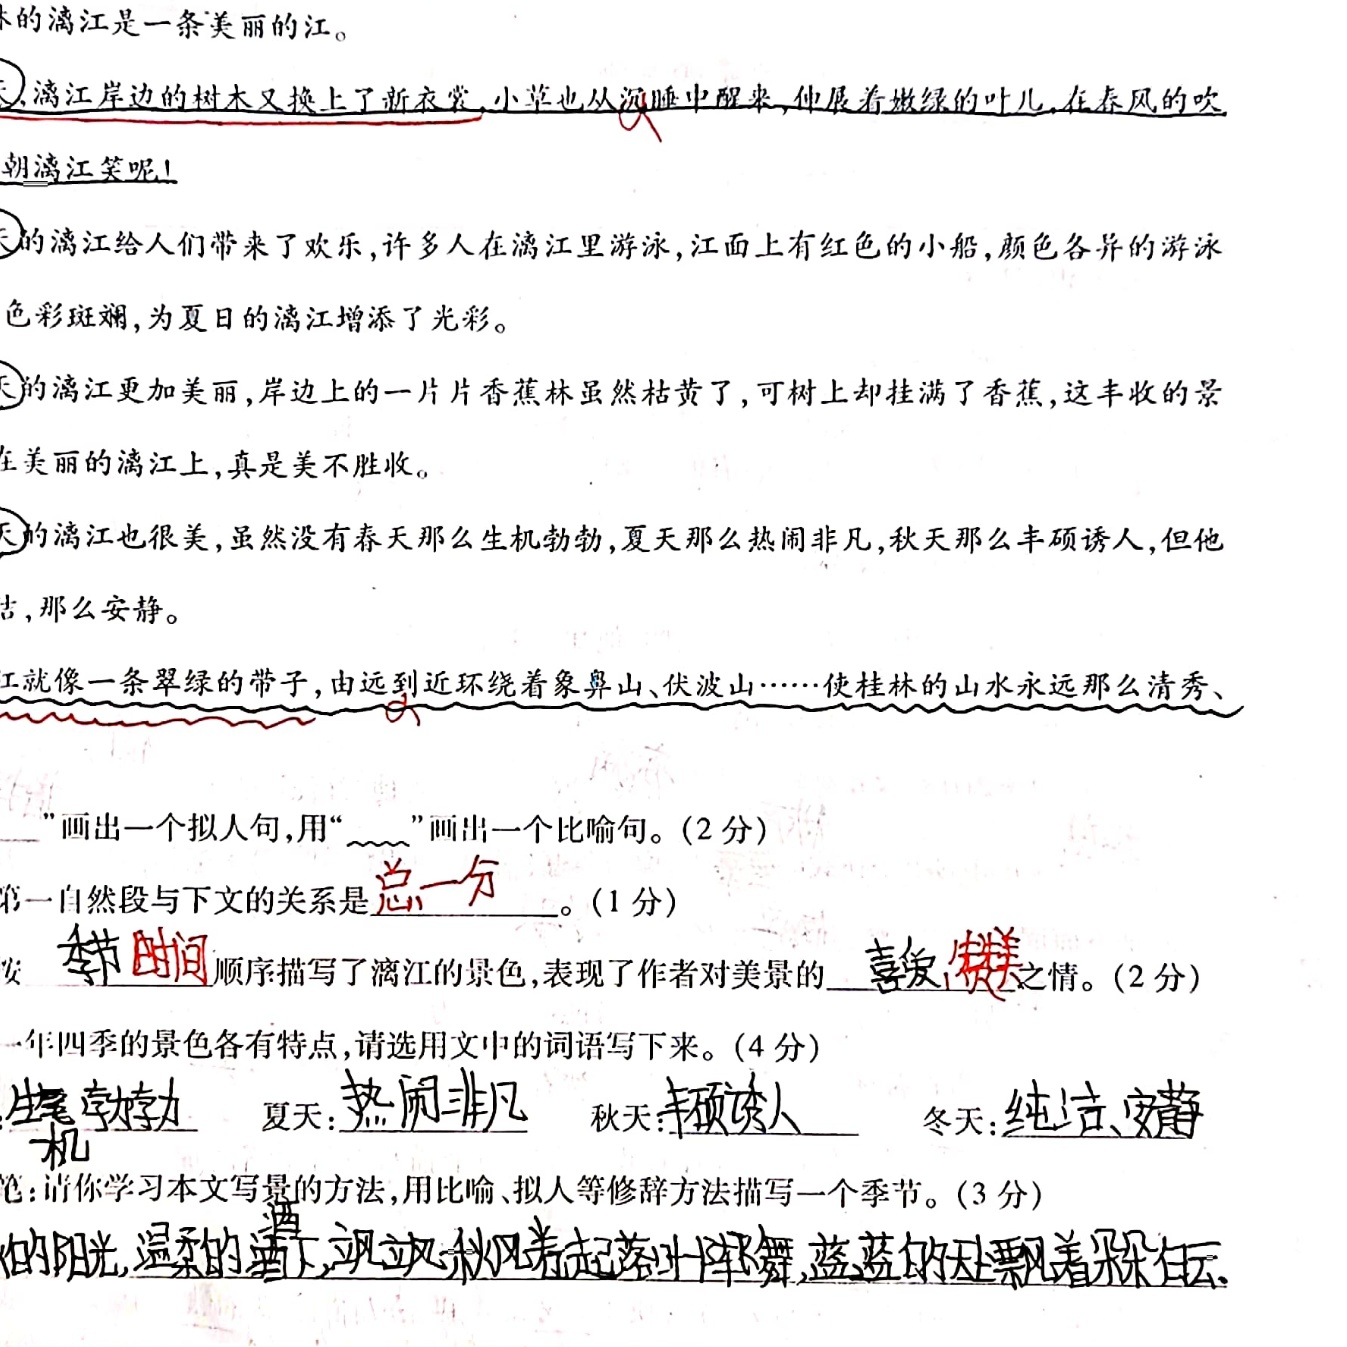 的漓江是一条美丽的江。
漓江岸边的树木又换上了新衣裳,小草也从沉睡中醒来,伸展着嫩绿的叶儿,在春风的吹
朝漓江笑呢!
天的漓江给人们带来了欢乐,许多人在漓江里游泳,江面上有红色的小船,颜色各异的游泳
色彩斑斓,为夏日的漓江增添了光彩。
天的漓江更加美丽,岸边上的一片片香蕉林虽然枯黄了,可树上却挂满了香蕉,这丰收的景
在美丽的漓江上,真是美不胜收。
天的漓江也很美,虽然没有春天那么生机勃勃,夏天那么热闹非凡,秋天那么丰硕诱人,但他
洁,那么安静。
江就像一条翠绿的带子,由远到近环绕着象鼻山、伏波山……使桂林的山水永远那么清秀、
”画出一个拟人句,用“﹏﹏”画出一个比喻句。(2 分)
第一自然段与下文的关系是总一分。(1 分)
按 季节 时间 顺序描写了漓江的景色,表现了作者对美景的 喜爱,赞美之情。(2 分)
一年四季的景色各有特点,请选用文中的词语写下来。(4 分)
生机勃勃 夏天:热闹非凡 秋天:丰硕诱人 冬天:纯洁、安静
笔:请你学习本文写景的方法,用比喻、拟人等修辞方法描写一个季节。(3 分)
的阳光,温柔的洒下,飒飒秋风卷起落叶 舞,蓝蓝的天上飘着朵朵白云、